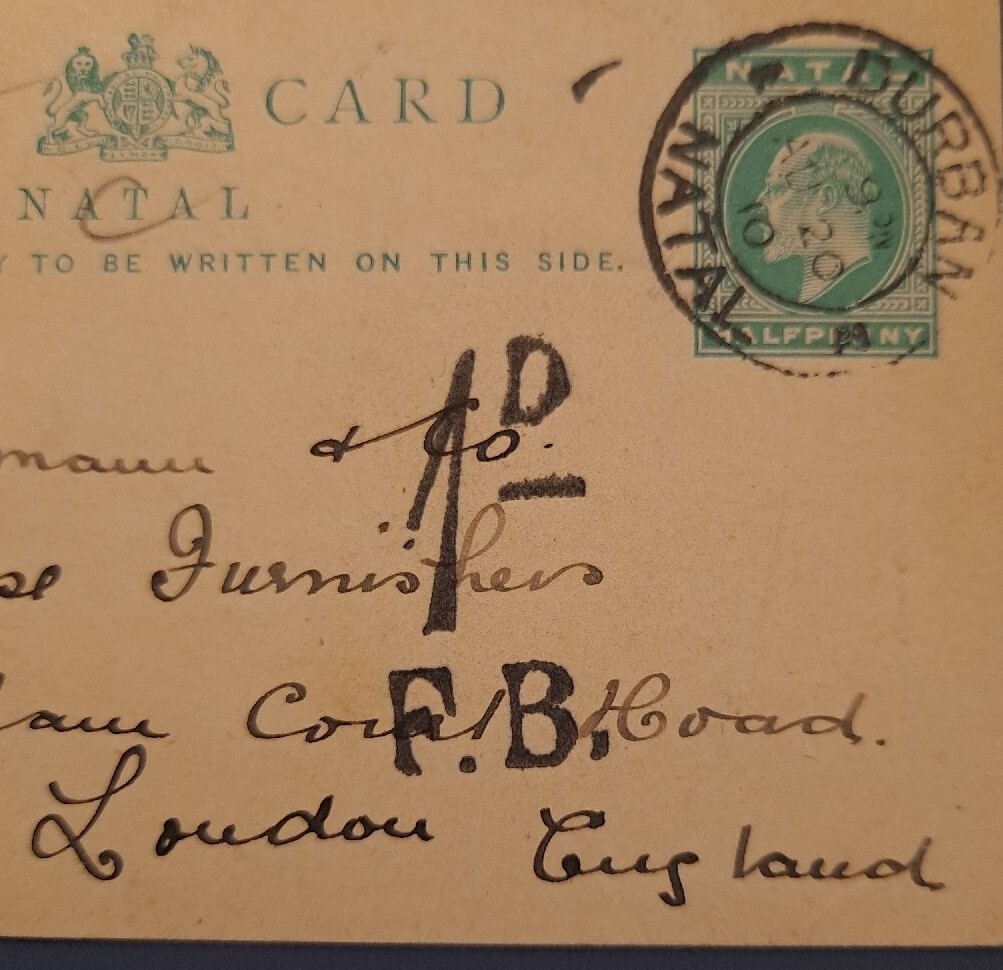 CARD
NATAL
Y TO BE WRITTEN ON THIS SIDE.
NATAL
HALFPENNY
DURBAN
NATAL
20
10
1D
mann & Co.
se Furnishers
am Court Road.
F.B.
London England